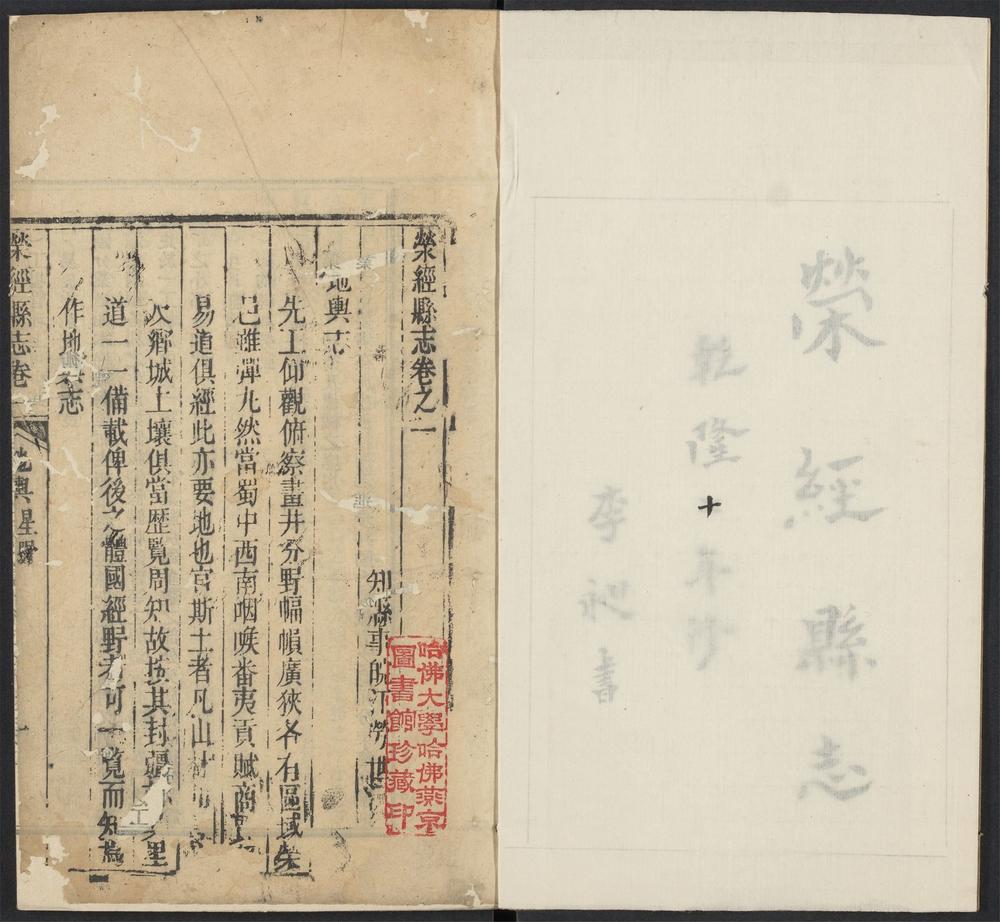 榮經縣志
乾隆十年修
李昶書
榮經縣志卷之一
知縣事皖江勞世
哈佛大學哈佛燕京
圖書館珍藏印
地輿志
先王仰觀俯察畫井分野幅幀廣狹各有區域榮
邑雖彈丸然當蜀中西南咽喉番夷貢賦商
易道俱經此亦要地也官斯土者凡山
鄉城土壤俱當歷覽周知故按其封疆里
道一一備載俾後之體國經野者可一覽而知焉
作地輿志
榮經縣志卷一
地輿星野